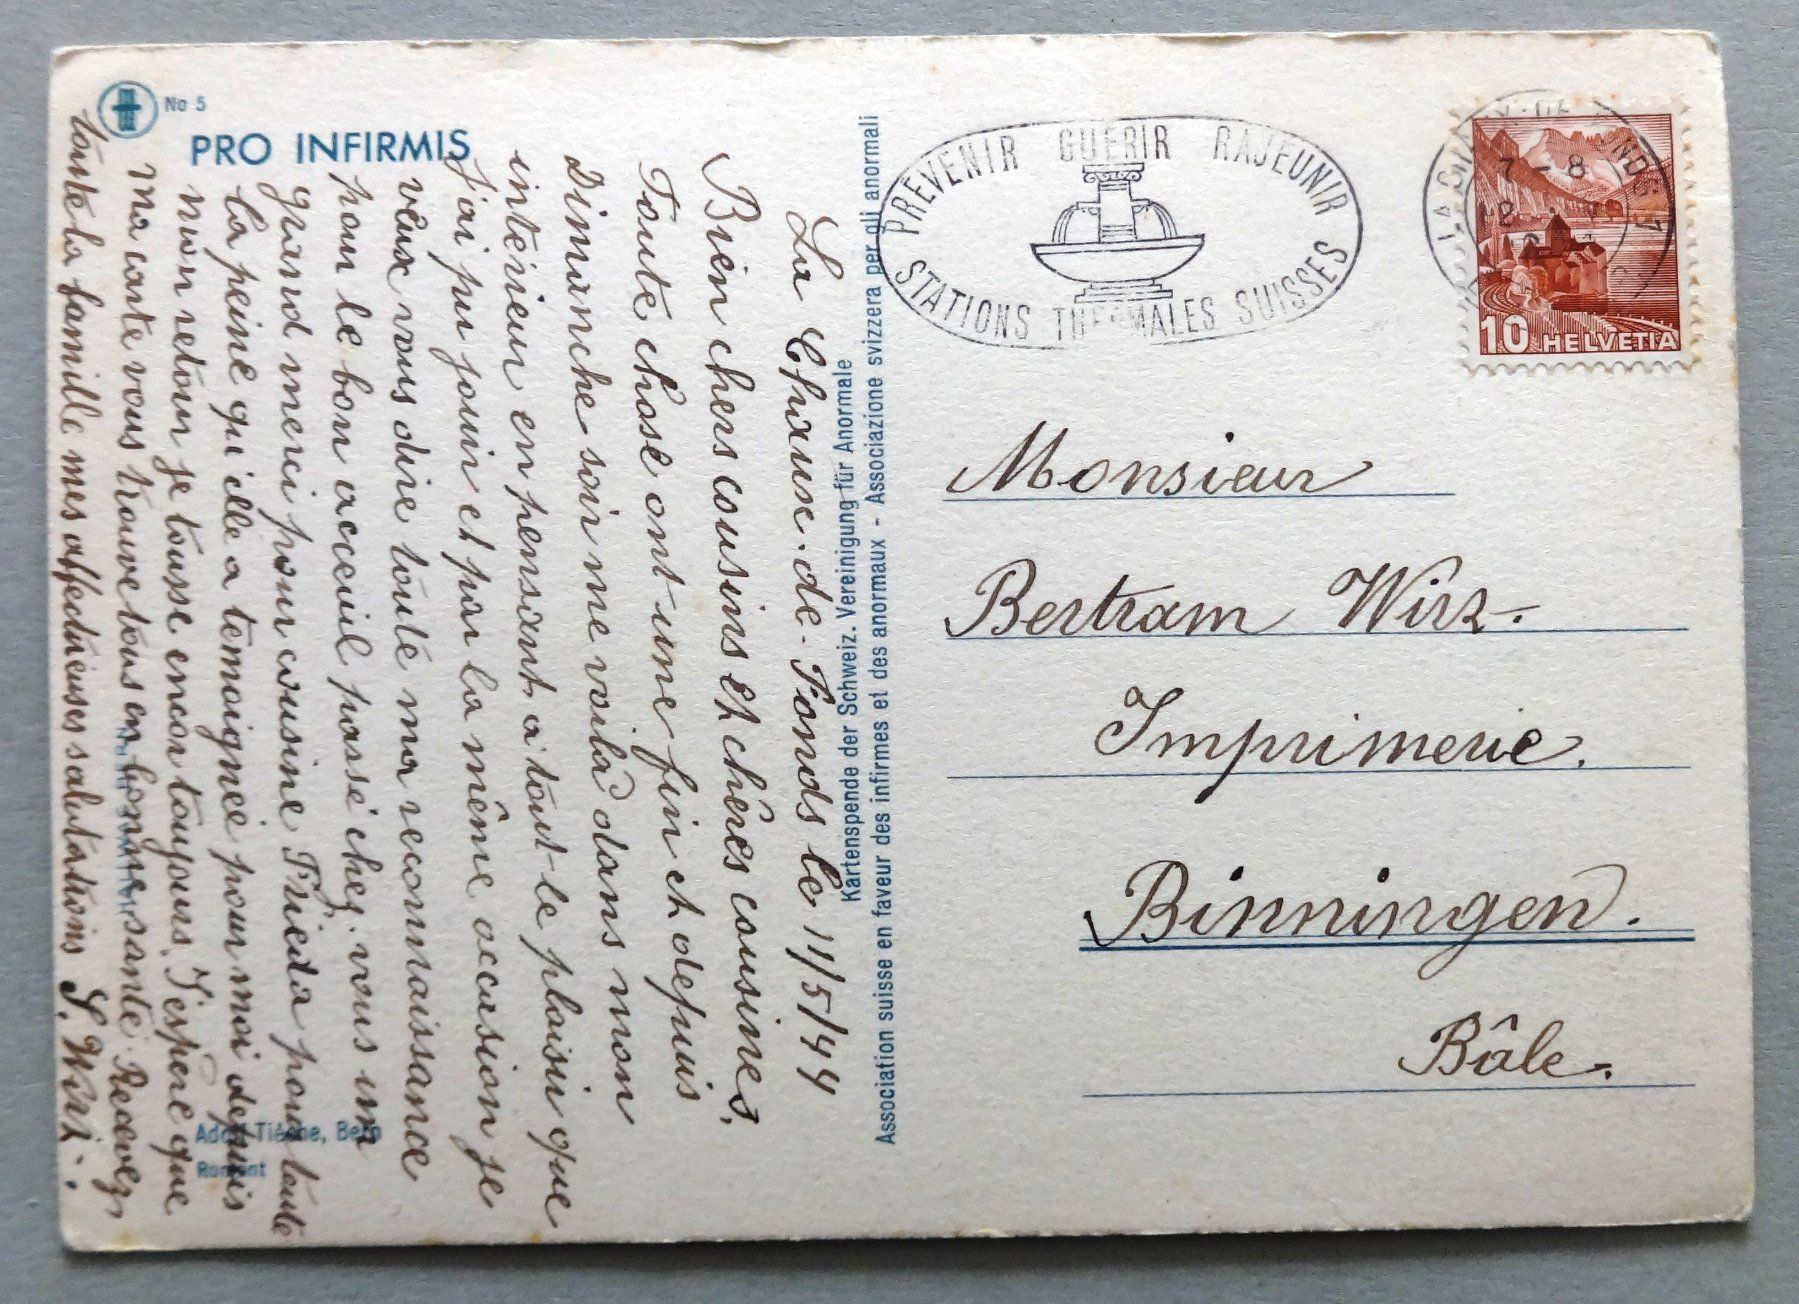 No 5
PRO INFIRMIS
La Chaux-de-Fonds le 11/5/44
Bien chers cousins et chères cousines,
Toute chose ont une fin et depuis
Dimanche soir me voilà dans mon
intérieur en pensant à tout le plaisir que
j'ai pu jouir et par la même occasion je
veux vous dire toute ma reconnaissance
pour le bon acceuil passé chez vous un
grand merci pour cousine Frieda pour toute
la peine qu'elle a temoignée pour moi depuis
mon retour je tousse encor toujours. J'espère que
ma carte vous trouve tous en bonne santé Recevez
toute la famille mes affectueuses salutations S. Wirz.
Adolf Tièche, Bern
Romont
Kartenspende der Schweiz. Vereinigung für Anormale
Association suisse en faveur des infirmes et des anormaux - Associazione svizzera per gli anormali
PRÉVENIR GUÉRIR RAJEUNIR
STATIONS THERMALES SUISSES
LA CHAUX-DE-FONDS 1
7-8
12
10 HELVETIA
Monsieur
Bertram Wirz.
Imprimerie.
Binningen.
Bâle.